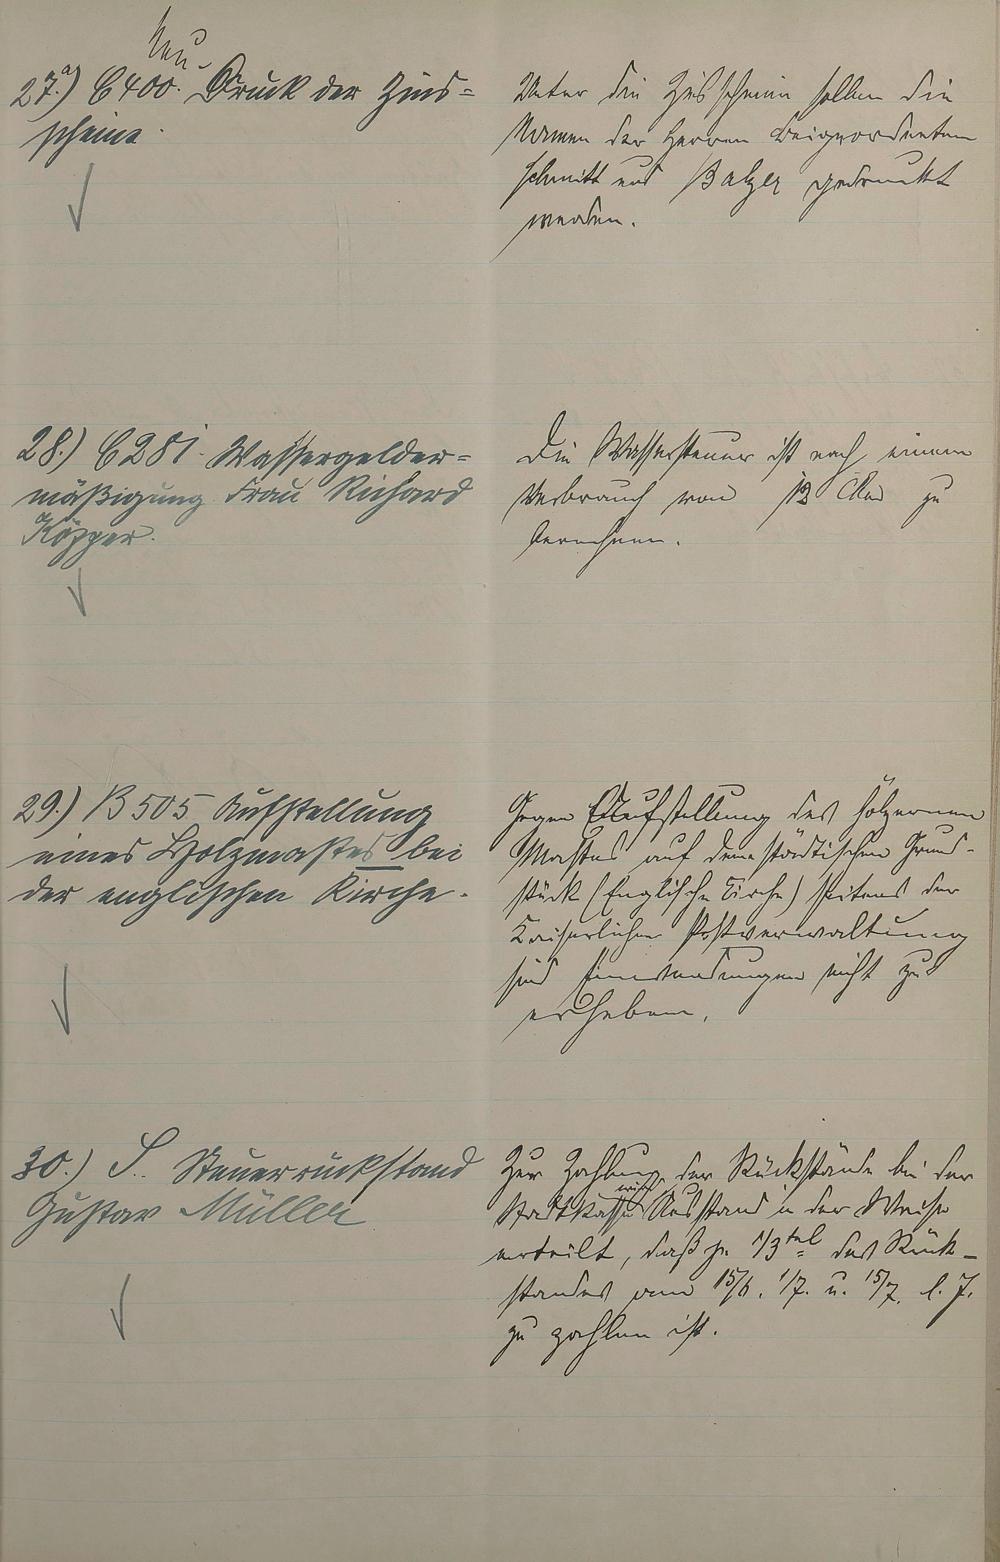 Neu-
27.a) C 400. Druck der Zins=
scheine.
Unter die Zinsscheine sollen die
Namen der Herren Beigeordneten
Schmitt und Balzer gedruckt
werden.
28.) C 281. Wassergelder=
mäßigung Frau Richard
Küpper.
Die Wassersteuer ist nach einem
Verbrauch von 12 Cbm zu
berechnen.
29.) B 505 Aufstellung
eines Holzmastes bei
der englischen Kirche.
Gegen Aufstellung des hölzernen
Mastes auf dem städtischen Grund-
stück (Englische Kirche) seitens der
Kaiserlichen Postverwaltung
sind Einwendungen nicht zu
erheben.
30.) S. Steuerrückstand
Gustav Müller
Zur Zahlung der Rückstände bei der
Stadtkasse wird Ausstand in der Weise
erteilt, daß je 1/3tel des Rück-
standes am 15/6. 1/7. u. 15/7. l. J.
zu zahlen ist.